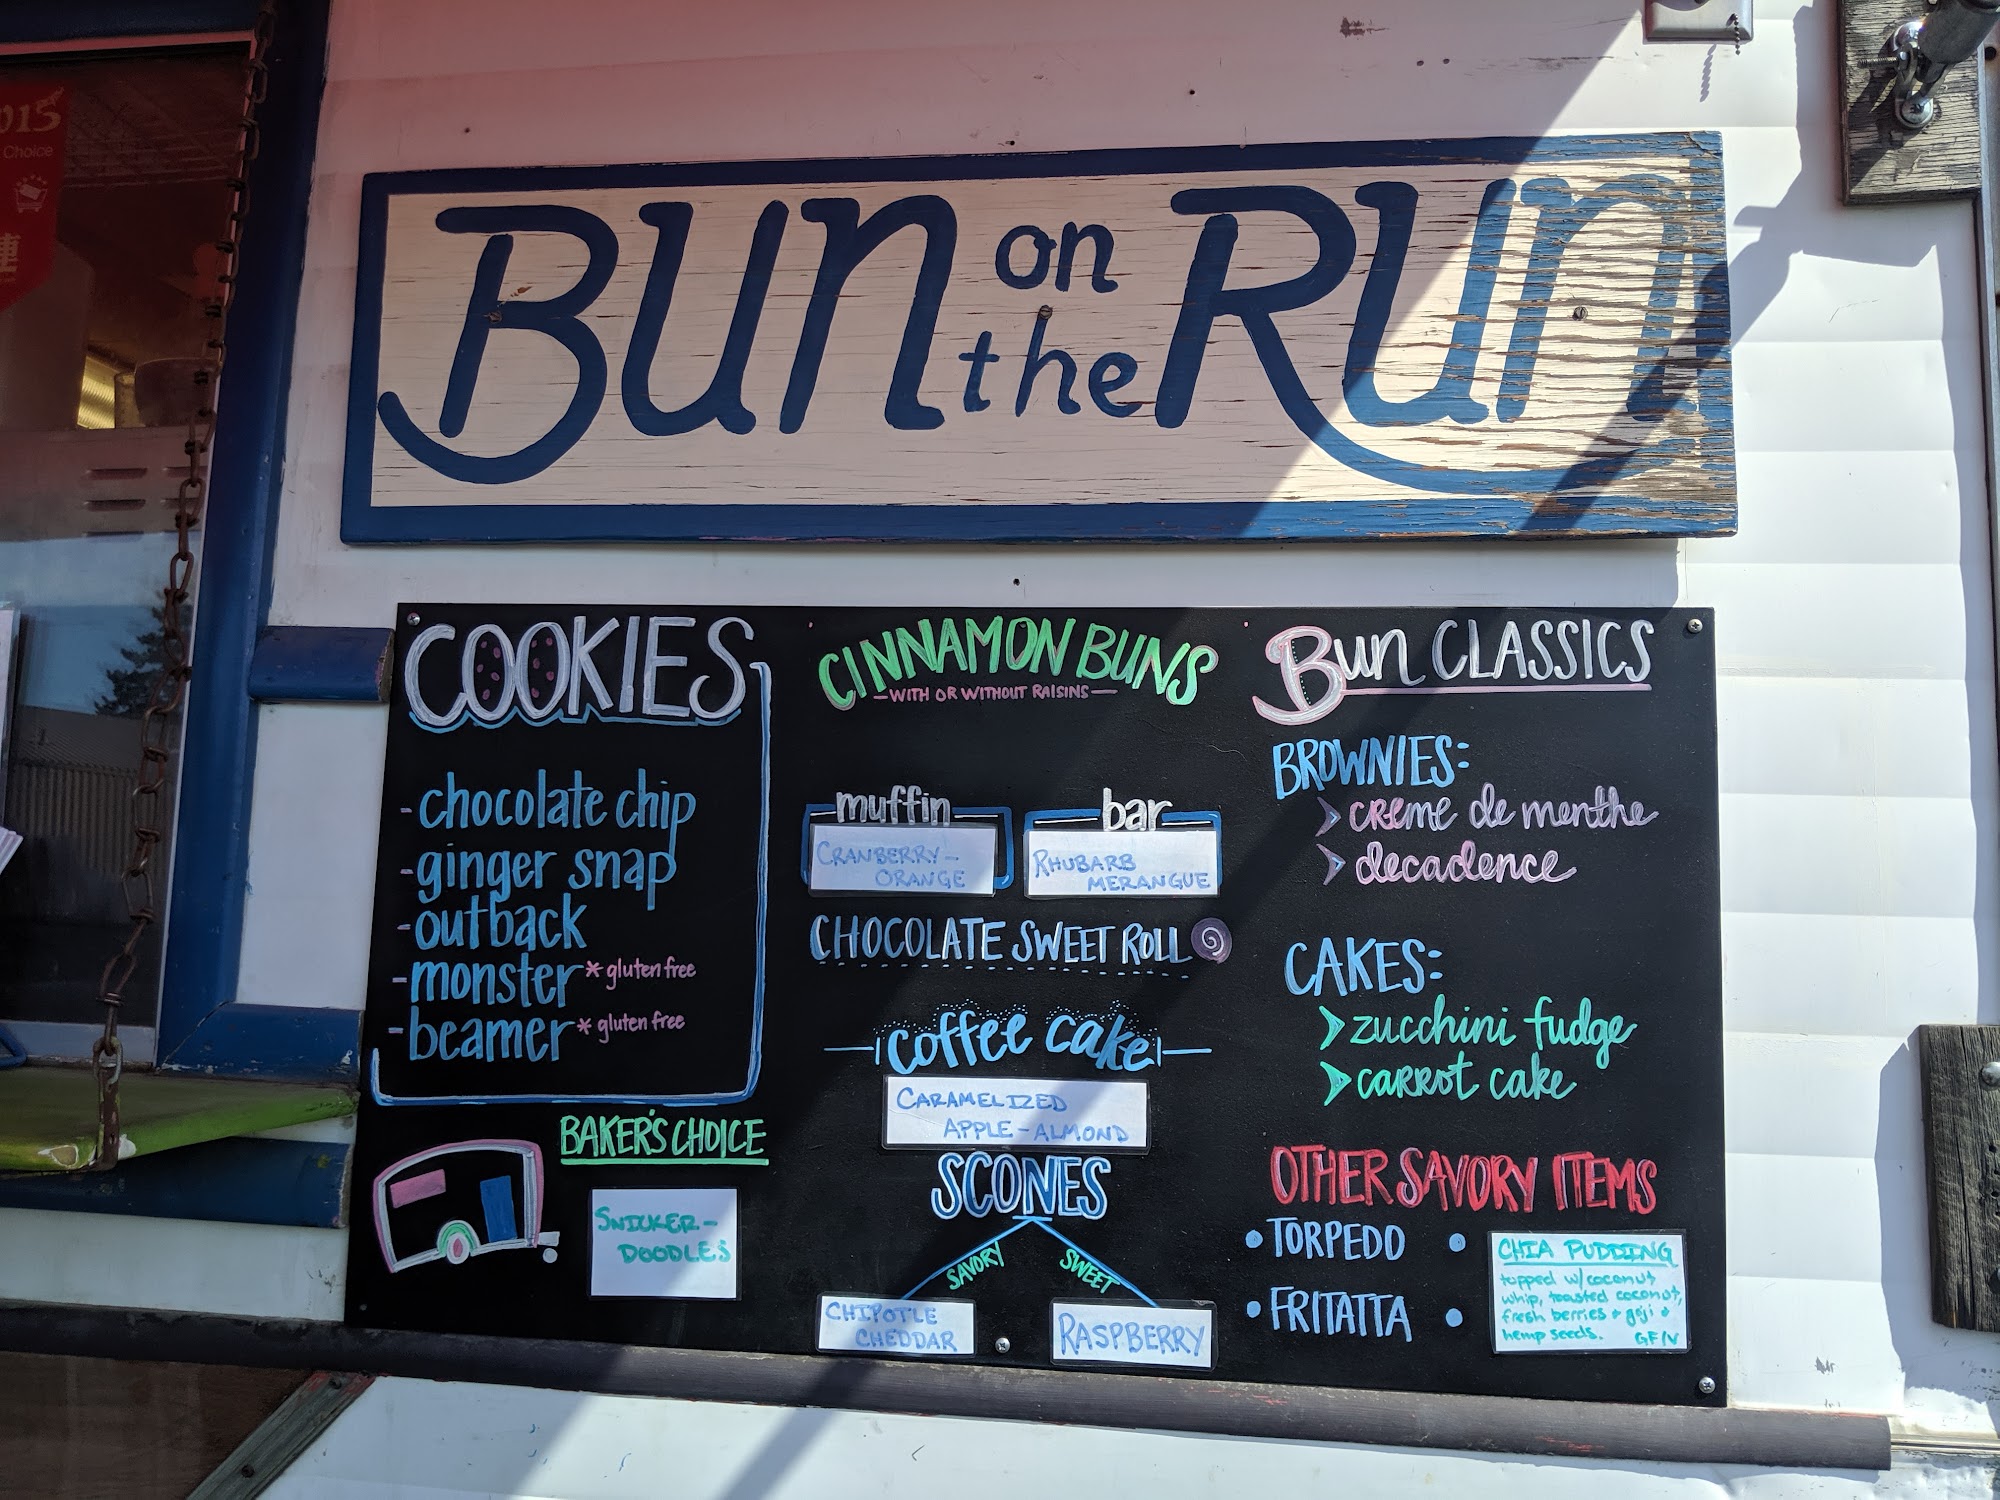 2015
Choice
BUN on the RUN
COOKIES
-chocolate chip
-ginger snap
-outback
-monster * gluten free
-beamer * gluten free
BAKER'S CHOICE
SNICKER-
DOODLES
CINNAMON BUNS
-WITH OR WITHOUT RAISINS-
muffin
CRANBERRY-
ORANGE
bar
RHUBARB
MERANGUE
CHOCOLATE SWEET ROLL
coffee cake
CARAMELIZED
APPLE-ALMOND
SCONES
SAVORY
SWEET
CHIPOTLE
CHEDDAR
RASPBERRY
Bun CLASSICS
BROWNIES:
> creme de menthe
> decadence
CAKES:
> zucchini fudge
> carrot cake
OTHER SAVORY ITEMS
• TORPEDO
• FRITATTA
•
•
CHIA PUDDING
topped w/ coconut
whip, toasted coconut,
fresh berries + goji +
hemp seeds. GF/V